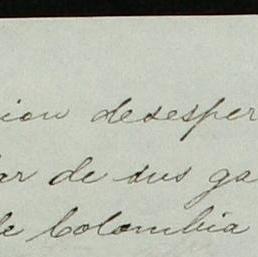 ion desesper
ar de sus ga
de Colombia